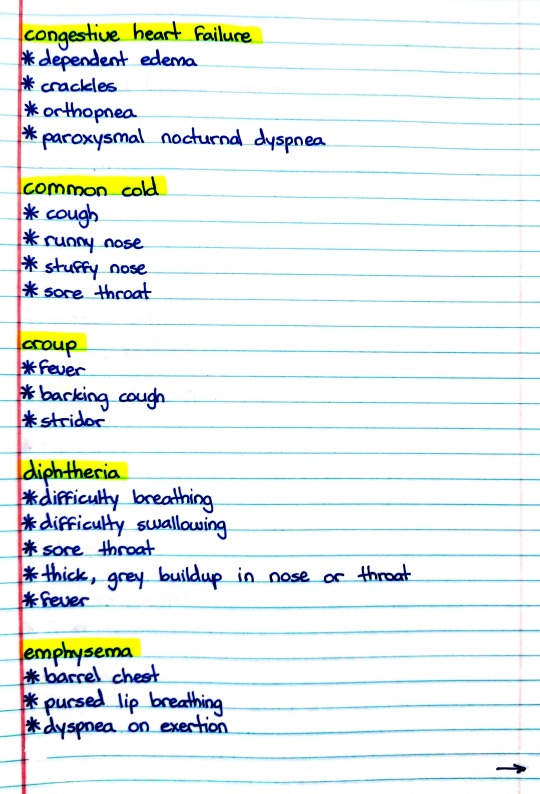 congestive heart failure
* dependent edema
* crackles
* orthopnea
* paroxysmal nocturnal dyspnea
common cold
* cough
* runny nose
* stuffy nose
* sore throat
croup
* fever
* barking cough
* stridor
diphtheria
* difficulty breathing
* difficulty swallowing
* sore throat
* thick, grey buildup in nose or throat
* fever
emphysema
* barrel chest
* pursed lip breathing
* dyspnea on exertion
→